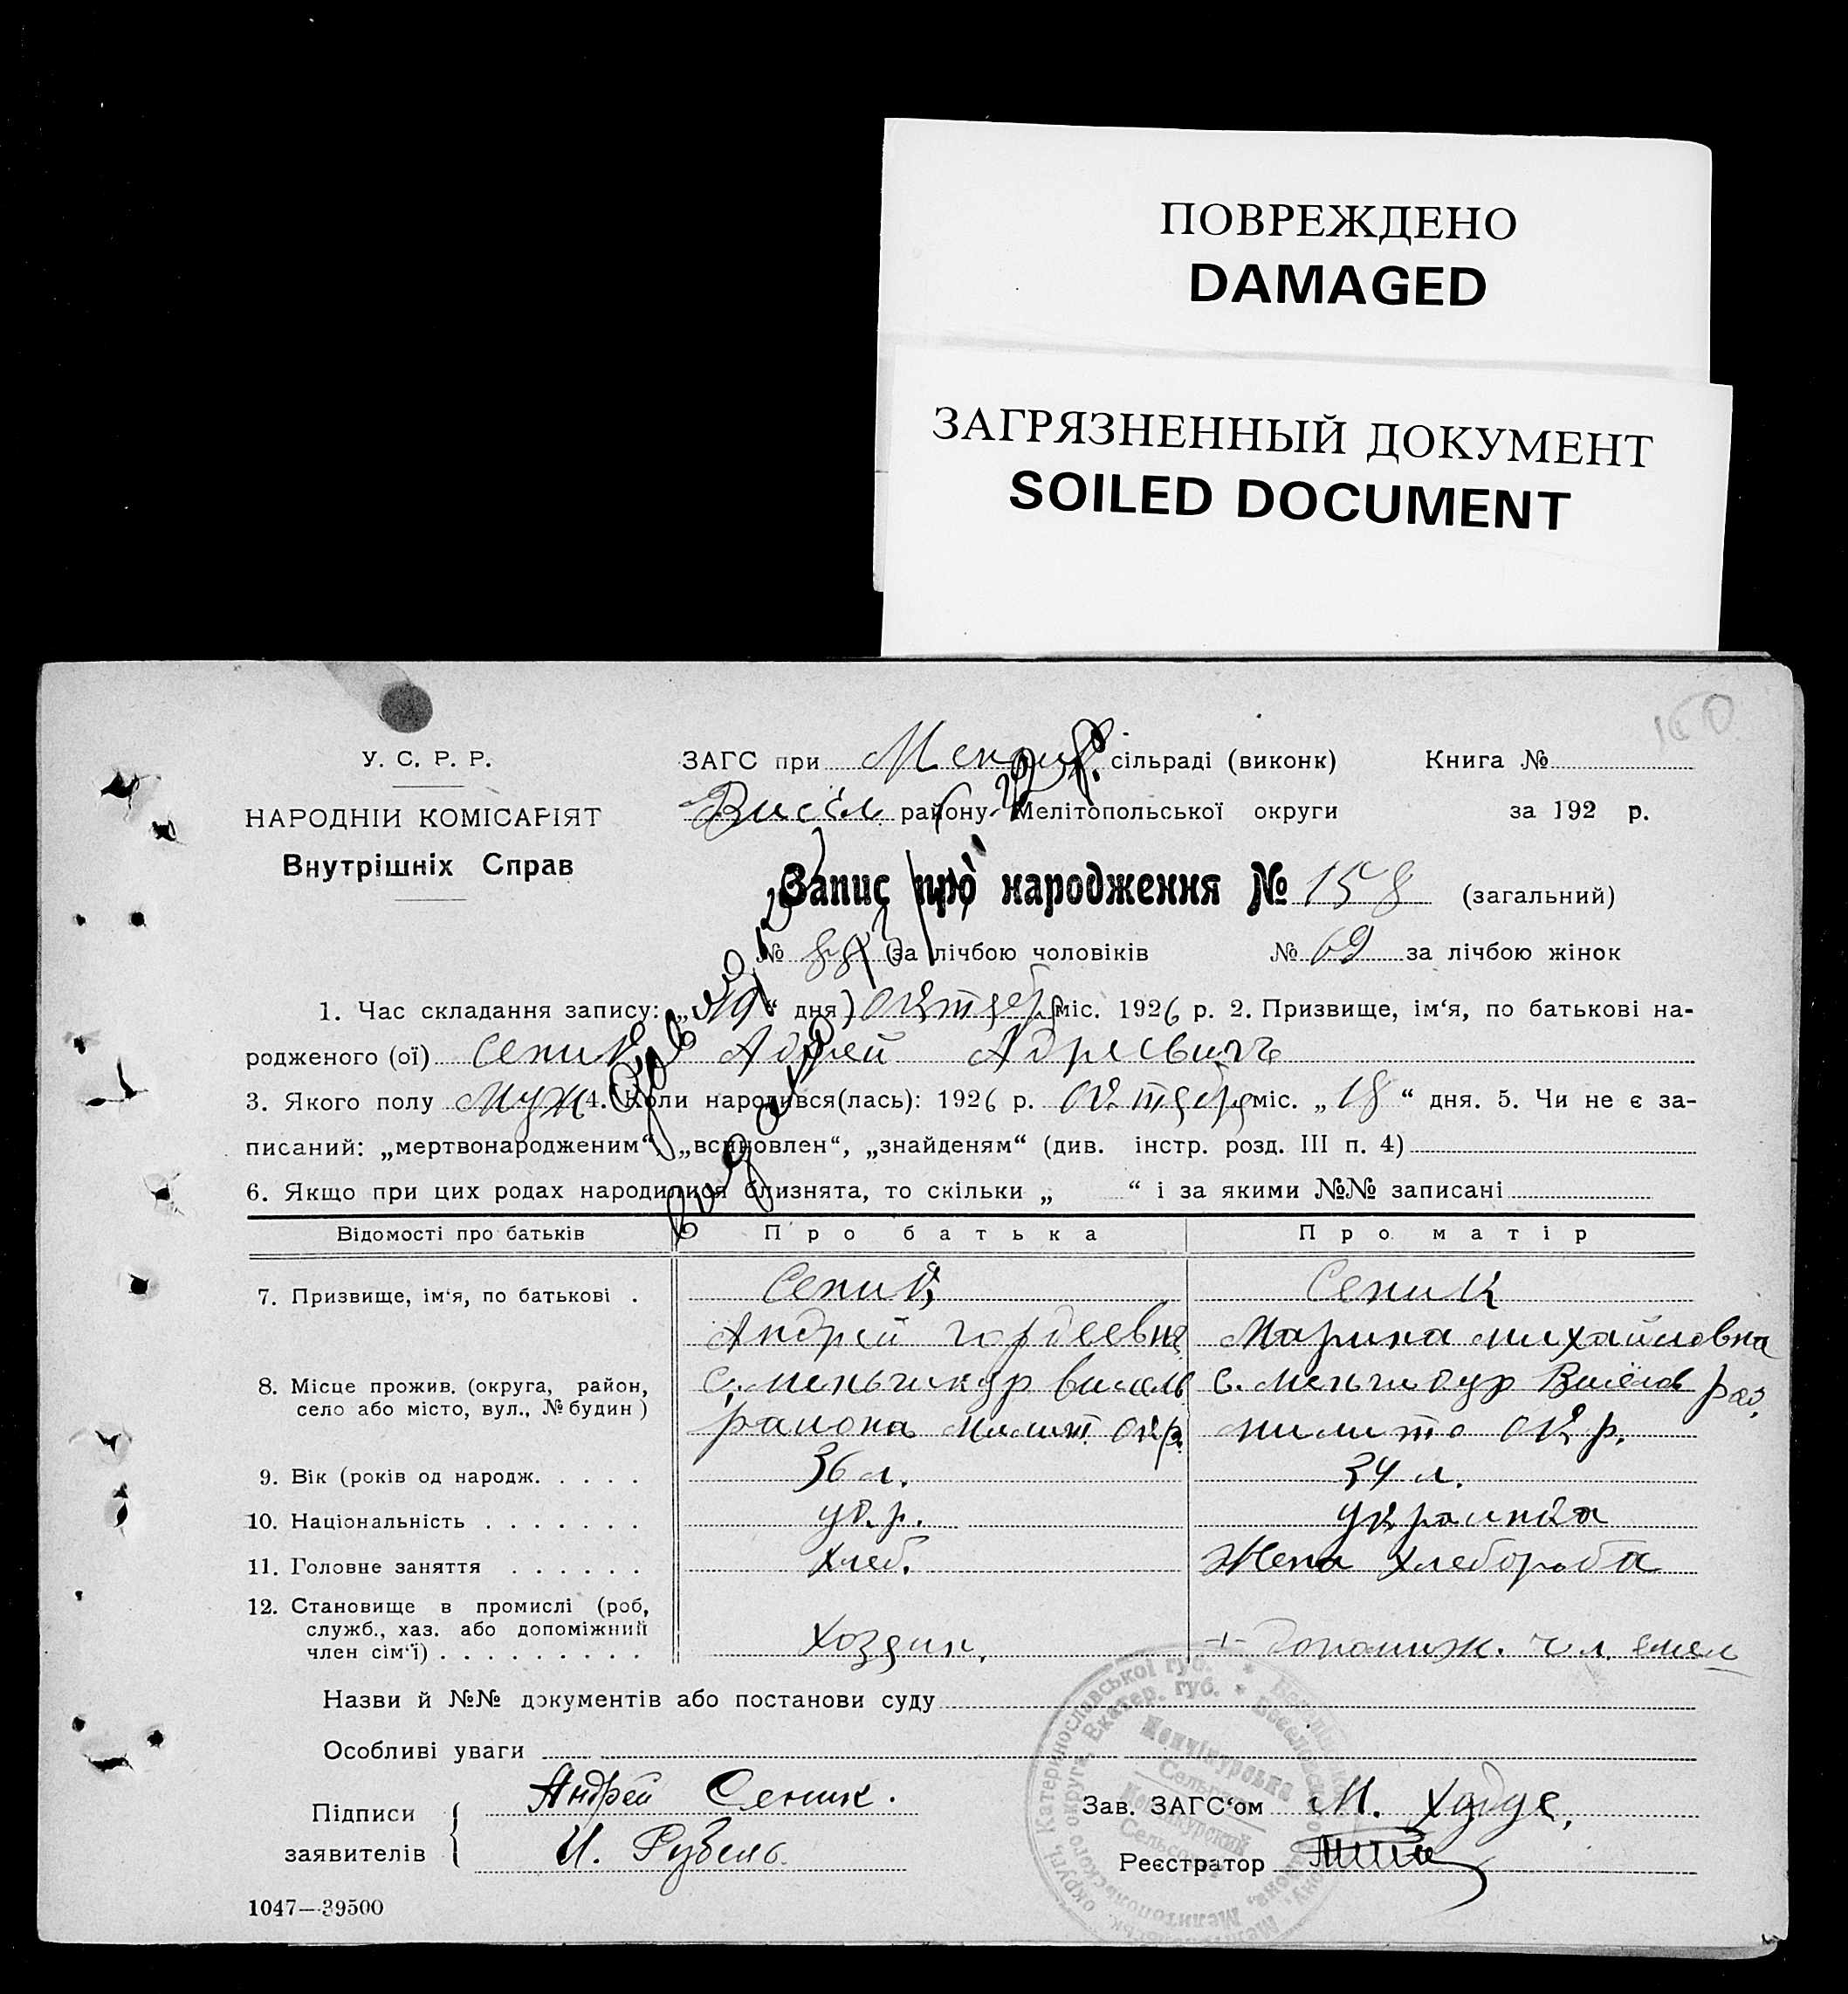 ПОВРЕЖДЕНО
DAMAGED
ЗАГРЯЗНЕННЫЙ ДОКУМЕНТ
SOILED DOCUMENT
160
У. С. Р. Р.
НАРОДНІЙ КОМІСАРІЯТ
Внутрішніх Справ
ЗАГС при сільраді (виконк) Книга №
Висёл району Мелітопольської округи за 192 р.
Запис про народження № 158 (загальний)
№ за лічбою чоловіків № 69 за лічбою жінок
1. Час складання запису: „19“ дня октября міс. 1926 р. 2. Призвище, ім‘я, по батькові на-
родженого (ої) Сеник Адрей Адреевичъ
3. Якого полу муж 4. Коли народився(лась): 1926 р. октября міс. „18“ дня. 5. Чи не є за-
писаний: „мертвонародженим“, „всиновлен“, „знайденям“ (див. інстр. розд. III п. 4)
6. Якщо при цих родах народилися близнята, то скільки „ “ і за якими №№ записані
Відомості про батьків Про батька Про матір
7. Призвище, ім‘я, по батькові . Сеник Сеник
Андрей Гордеевич Марина Михайловна
8. Місце прожив. (округа, район, село або місто, вул., № будин) с. Менчикур с. Менчикур
района Мелит. окр. окр.
9. Вік (років од народж. . . . . 36 л. 34 л.
10. Національність . . . . . . . укр. украинка
11. Головне заняття . . . . . . хлеб. жена хлебороба
12. Становище в промислі (роб,
служб., хаз. або допоміжний
член сім‘ї) . . . . . . . . . хозяин. допомиж. чл. семьи
Назви й №№ документів або постанови суду
Особливі уваги
Підписи
заявителів
Андрей Сеник.
И. Рубель
Зав. ЗАГС‘ом М.
Реєстратор
1047—39500